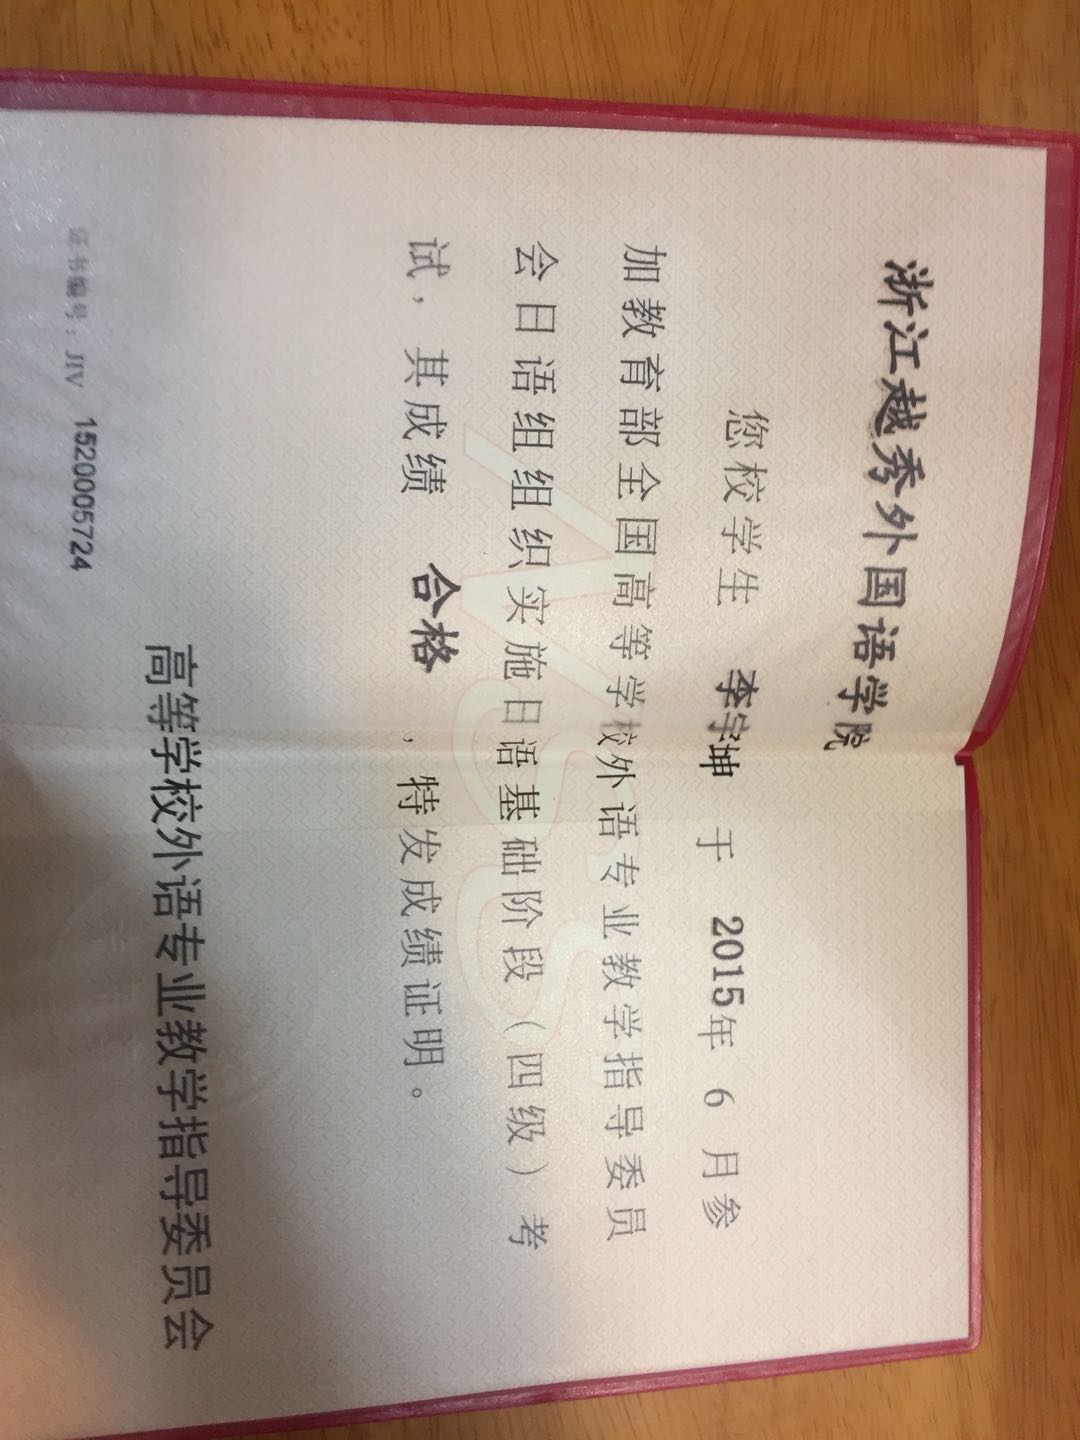 浙江越秀外国语学院
您校学生 李宇坤 于 2015年 6 月参
加教育部全国高等学校外语专业教学指导委员
会日语组组织实施日语基础阶段（四级）考
试，其成绩 合格 ，特发成绩证明。
高等学校外语专业教学指导委员会
证书编号：JIV 1520005724